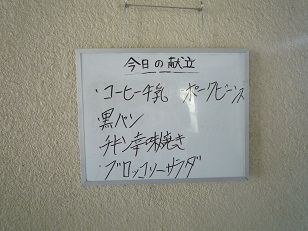 今日の献立
・コーヒー牛乳 ポークビーンズ
・黒パン
・チキン辛味焼き
・ブロッコリーサラダ